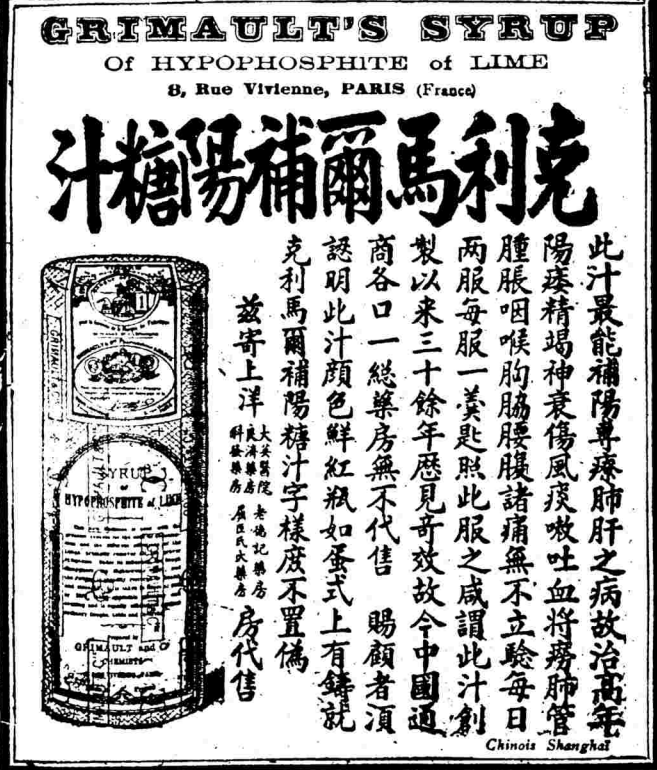 GRIMAULT'S SYRUP
Of HYPOPHOSPHITE of LIME
8, Rue Vivienne, PARIS (France)
克利馬爾補陽糖汁
此汁最能補陽專療肺肝之病故治高年
陽痿精竭神衰傷風痰嗽吐血將癆肺管
腫脹咽喉胸脇腰腹諸痛無不立驗每日
两服每服一羹匙照此服之咸謂此汁創
製以来三十餘年歷見奇效故今中國通
商各口一総藥房無不代售 賜顧者湏
認明此汁顔色鮮紅瓶如蛋式上有鑄就
克利馬爾補陽糖汁字樣庶不置偽
兹寄上洋
大英醫院 老德記藥房
良濟藥房
科發藥房 屈臣氏大藥房
房代售
SYRUP
OF
HYPOPHOSPHITE of LIME
Prepared by
GRIMAULT and Co
CHEMISTS
Chinois Shanghaï